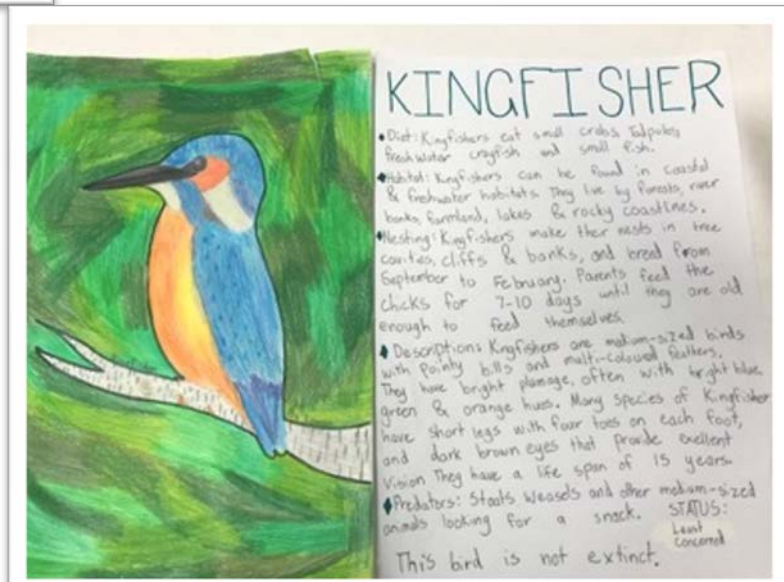 KINGFISHER
•Diet: Kingfishers eat small crabs, Tadpoles,
freshwater crayfish and small fish.
•Habitat: Kingfishers can be found in coastal
& freshwater habitats. They live by forests, river
banks, farmland, lakes & rocky coastlines.
•Nesting: Kingfishers make their nests in tree
cavities, cliffs & banks, and bread from
September to February. Parents feed the
chicks for 7-10 days until they are old
enough to feed themselves.
• Description: Kingfishers are medium-sized birds
with pointy bills and multi-coloured feathers.
They have bright plumage, often with bright blue,
green & orange hues. Many species of Kingfisher
have short legs with four toes on each foot,
and dark brown eyes that provide exellent
vision They have a life span of 15 years.
•Predators: Stoats Weasels and other medium-sized
animals looking for a snack.
STATUS:
Least
concerned
This bird is not extinct.